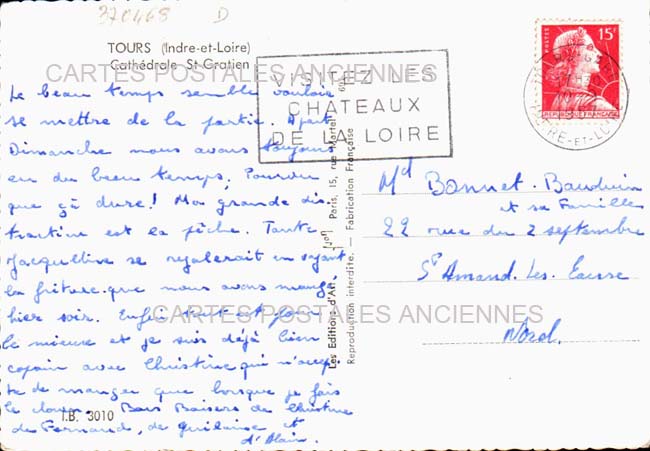 370468 D
TOURS (Indre-et-Loire)
Cathédrale St Gratien
CARTES POSTALES ANCIENNES
VISITEZ LES
CHATEAUX
DE LA LOIRE
POSTES
15F
REPUBLIQUE FRANÇAISE
INDRE-ET-LOIRE
Le beau temps semble vouloir
se mettre de la partie. A part
Dimanche nous avons toujours
eu du beau temps. Pourvu
que çà dure! Ma grande dis
traction est la pêche. Tante
Jacqueline se régalerait en voyant
la friture que nous avons mangé
hier soir. Enfin tout est pour
le mieux et je suis déjà bien
copain avec Christine qui n'accep
te de manger que lorsque je fais
le clown. Bons Baisers de Christine
de Fernand, de Guilaine et
d'Alain.
I.B. 3010
Les Editions d'Art Paris, 15, rue Martel
Reproduction interdite. — Fabrication Française
CARTES POSTALES ANCIENNES
Md Bonnet-Bauduin
et sa Famille
22 rue du 2 septembre
St Amand-Les-Eaux
Nord.